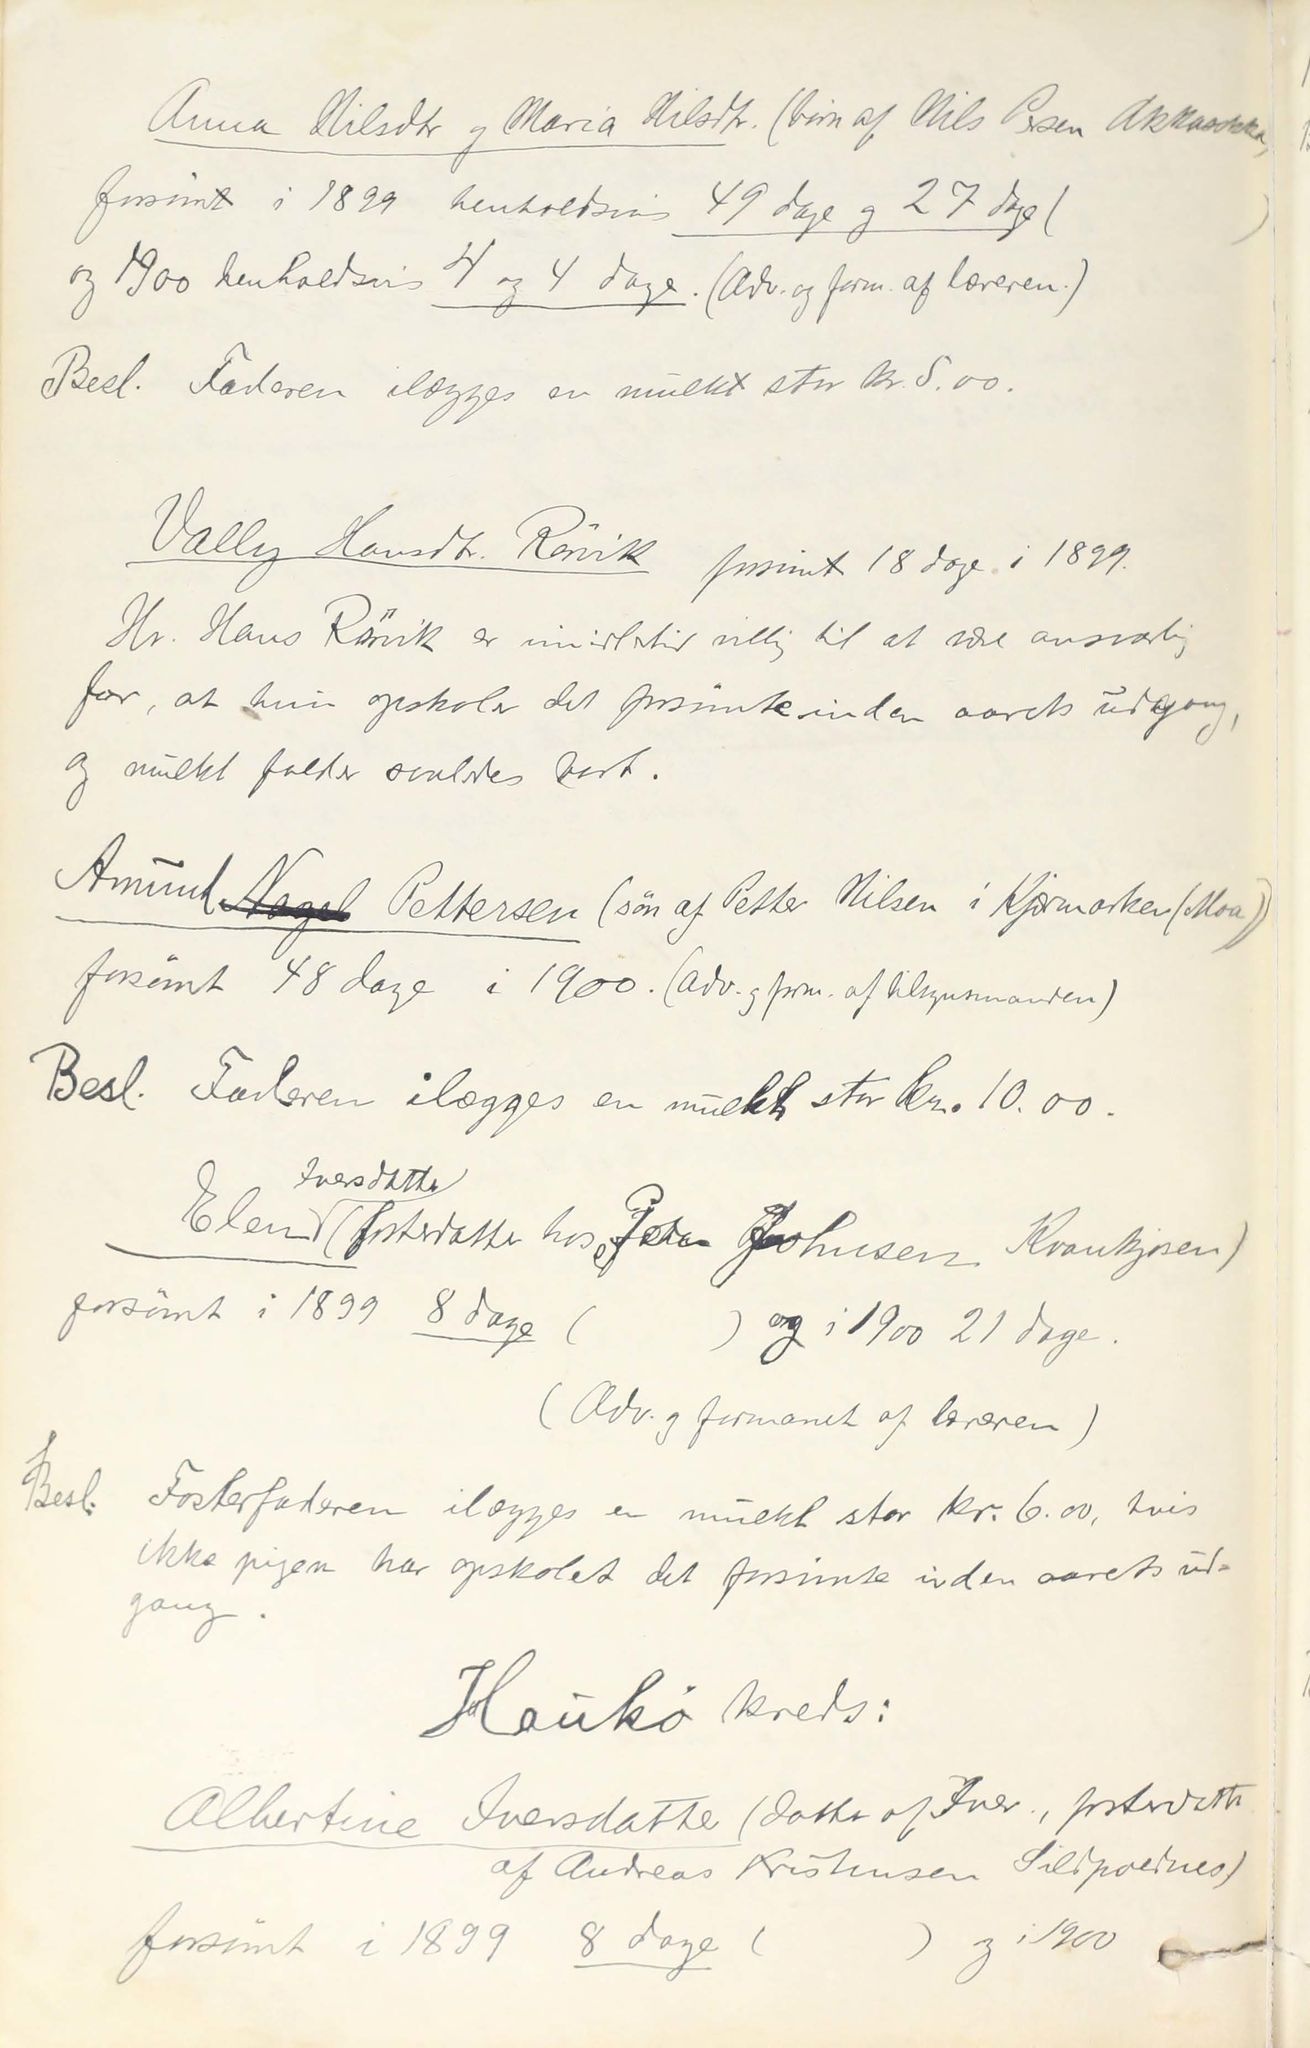 Anna Nilsdtr og Maria Nilsdtr. (børn af Nils Persen
forsömt i 1899 henholdsvis 49 dage og 27 dage ( )
og 1900 henholdsvis 4 og 4 dage. (Adv. og form. af læreren.)
Besl. Faderen ilægges en mulkt stor kr. 5.00.
Vally Hansdtr. Rörvik forsömt 18 dage i 1899.
Hr. Hans Rörvik er imidlertid villig til at være ansvarlig
for, at hun opskoler det forsömte inden aarets udgang,
og mulkt falder saaledes bort.
Amund Nagel Pettersen (sön af Petter Nilsen i Kjærmarken (Moa))
forsömt 48 dage i 1900. (Adv. og form. af tilsynsmanden)
Besl. Faderen ilægges en mulkt stor kr. 10.00.
Iversdatter
Elen (fosterdatter hos Peder Johnsen Kvankjosen)
forsömt i 1899 8 dage ( ) og i 1900 21 dage.
(Adv. og formanet af læreren)
Besl. Fosterfaderen ilægges en mulkt stor kr. 6.00, hvis
ikke pigen har opskolet det forsömte inden aarets ud-
gang.
Haukö kreds:
Albertine Iversdatter (datter af Iver , fosterdattr
af Andreas Kristensen Sildpoldnes)
forsömt i 1899 8 dage ( ) og i 1900